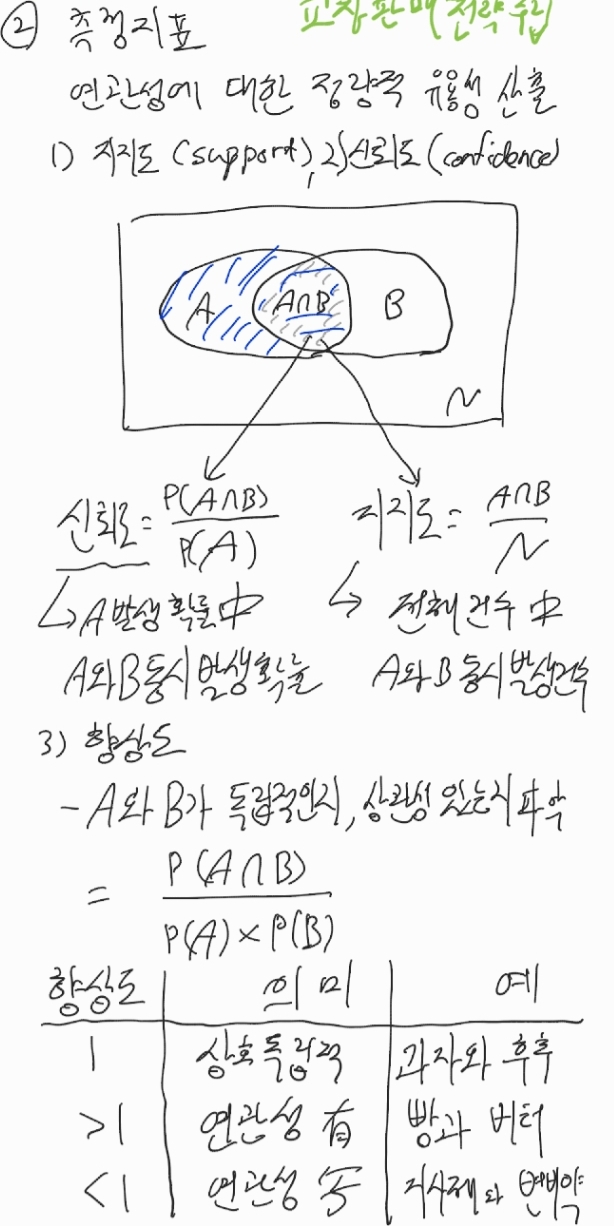 교차판매 전략 수립
② 측정지표
연관성에 대한 정량적 유용성 산출
1) 지지도 (support), 2) 신뢰도 (confidence)
A A∩B B
N
신뢰도 = P(A∩B) / P(A)
지지도 = A∩B / N
↳ A발생확률 中
A와 B 동시 발생확률
↳ 전체건수 中
A와 B 동시발생건수
3) 향상도
- A와 B가 독립적인지, 상관성 있는지 파악
= P(A∩B) / P(A) × P(B)
향상도 의미 예
1 상호독립적 과자와 후추
>1 연관성 有 빵과 버터
<1 연관성 지사제와 변비약